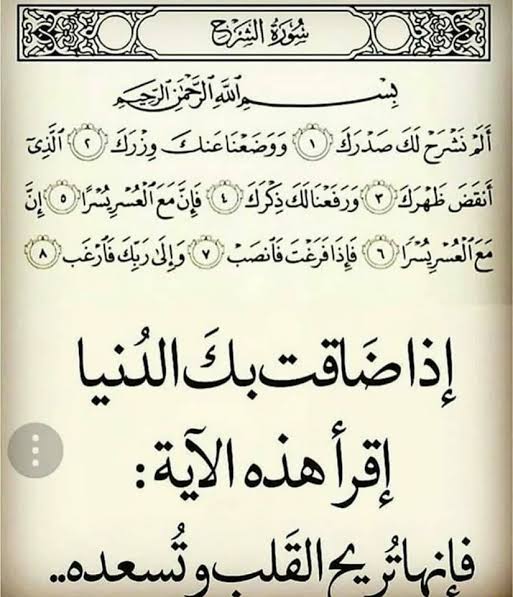 سُورَةُ الشَّرْحِ
بِسْمِ اللَّهِ الرَّحْمَٰنِ الرَّحِيمِ
أَلَمْ نَشْرَحْ لَكَ صَدْرَكَ ١ وَوَضَعْنَا عَنكَ وِزْرَكَ ٢ الَّذِي
أَنقَضَ ظَهْرَكَ ٣ وَرَفَعْنَا لَكَ ذِكْرَكَ ٤ فَإِنَّ مَعَ الْعُسْرِ يُسْرًا ٥ إِنَّ
مَعَ الْعُسْرِ يُسْرًا ٦ فَإِذَا فَرَغْتَ فَانصَبْ ٧ وَإِلَىٰ رَبِّكَ فَارْغَب ٨
إذا ضَاقت بكَ الدُنيا
إقرأ هذه الآية :
فإنها تُريح القَلب و تُسعده..